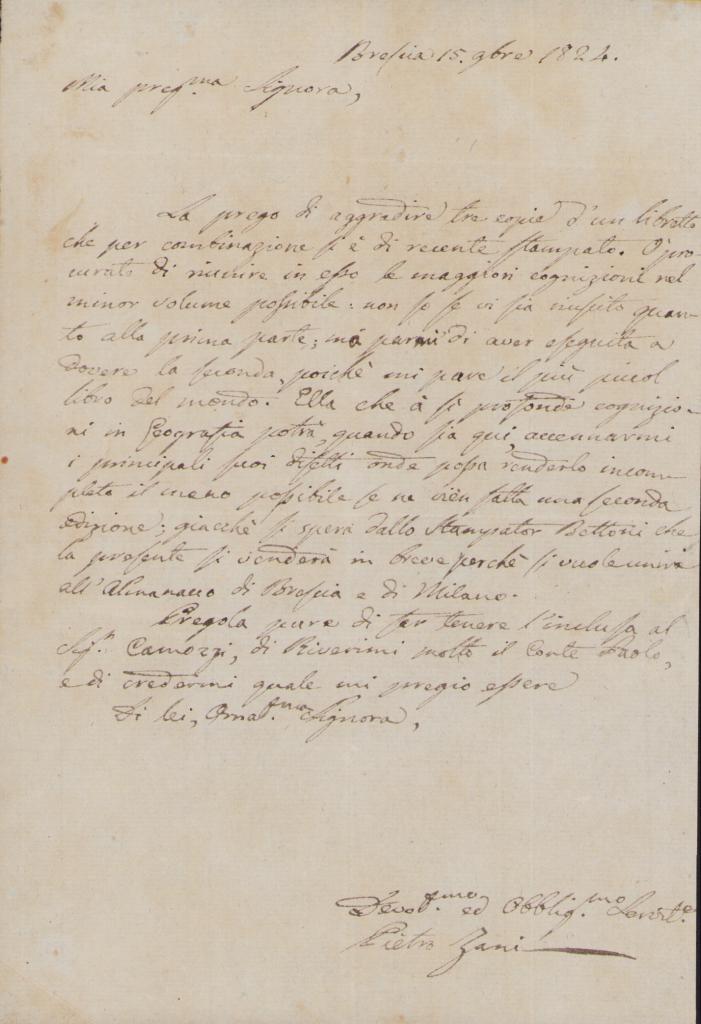 Brescia 15. 9bre 1824.
Mia preg.ma Signora,
La prego di aggradire tre copie d'un libretto
che per combinazione si è di recente stampato. Ò pro-
curato di riunire in esso le maggiori cognizioni nel
minor volume possibile: non so se vi sia riuscito quan-
to alla prima parte; ma parmi di aver eseguita a
dovere la seconda, poichè mi pare il più piccol
libro del mondo. Ella che à sì profonde cognizio-
ni in Geografia potrà, quando sia qui, accennarmi
i principali suoi difetti onde possa renderlo incom-
pleto il meno possibile se ne vien fatta una seconda
edizione; giacchè si spera dallo Stampator Bettoni che
la presente si venderà in breve perchè si vuole unire
all'Almanacco di Brescia e di Milano.
Pregola pure di far tenere l'inclusa al
Sig.r Camozzi, di Riverirmi molto il Conte Paolo,
e di credermi quale mi pregio essere
Di lei, Orna.sma Signora,
Devo.smo ed Obblig.mo Servit.e
Pietro Zani